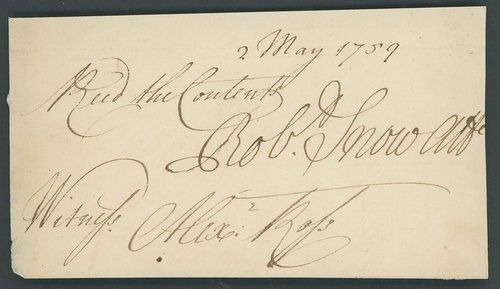 2 May 1759
Recd the Contents
Robt. Snow Atte
Witness. Alexr: Ross